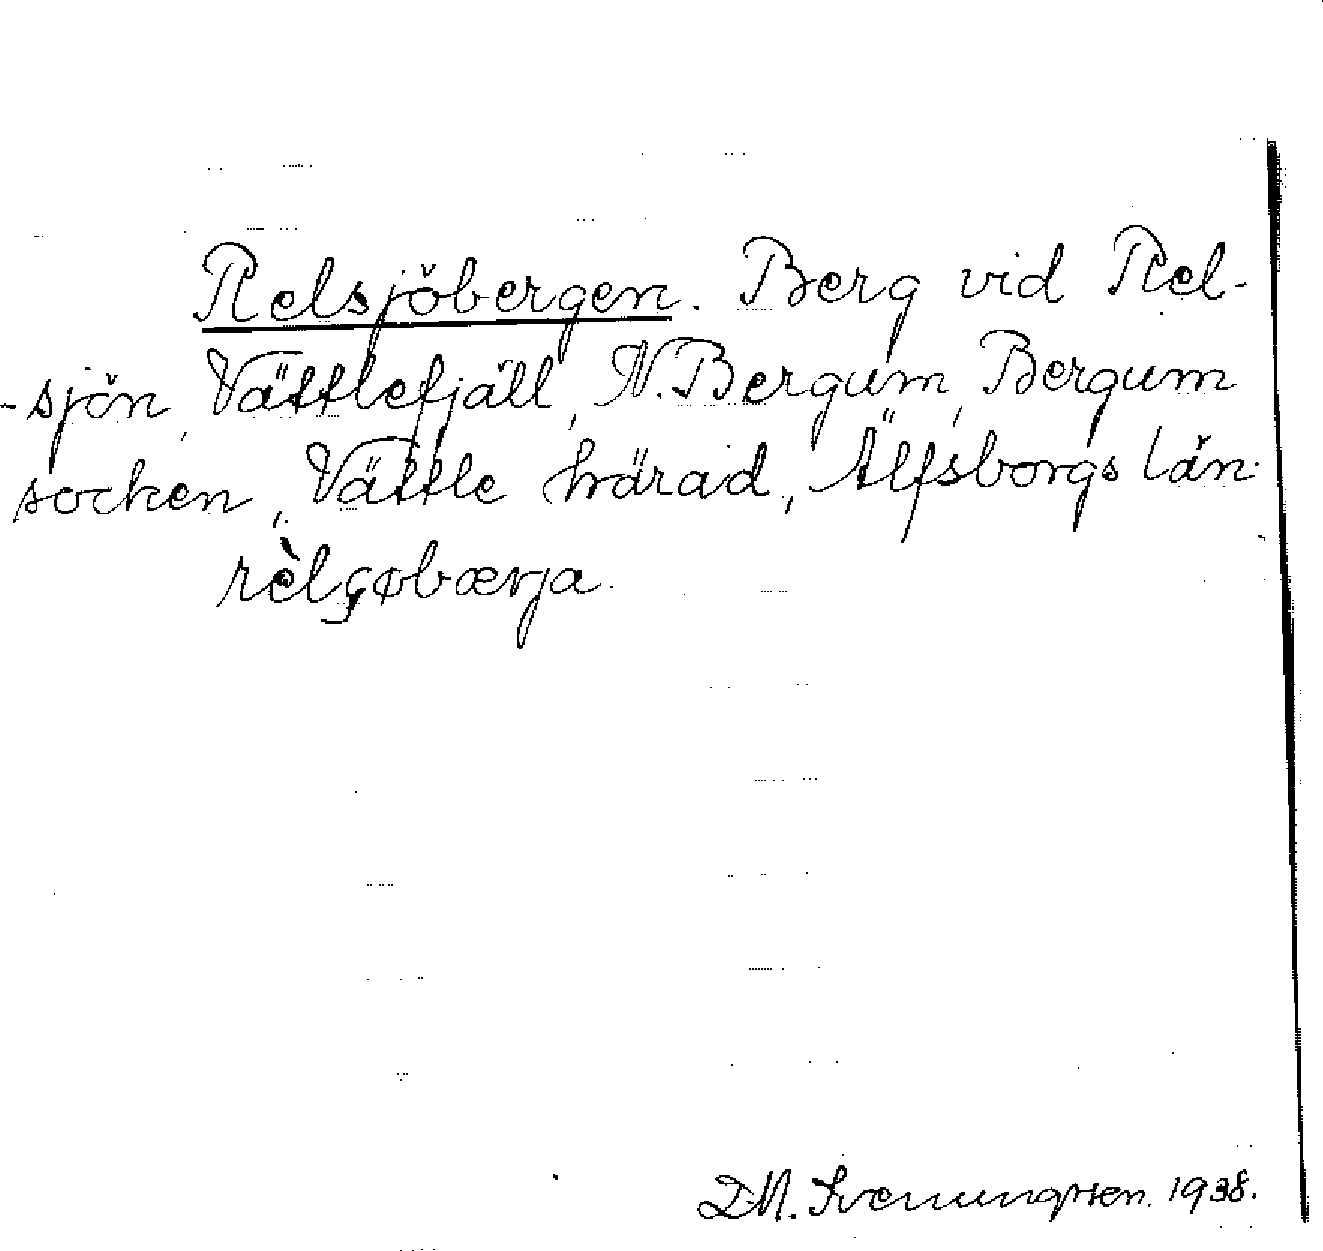 Relsjöbergen. Berg vid Rel-
-sjön, Vättlefjäll, N. Bergum, Bergum
socken, Vättle härad, Älfsborgs län.
rèlȿøbærja.
D.N. Svenungsson. 1938.